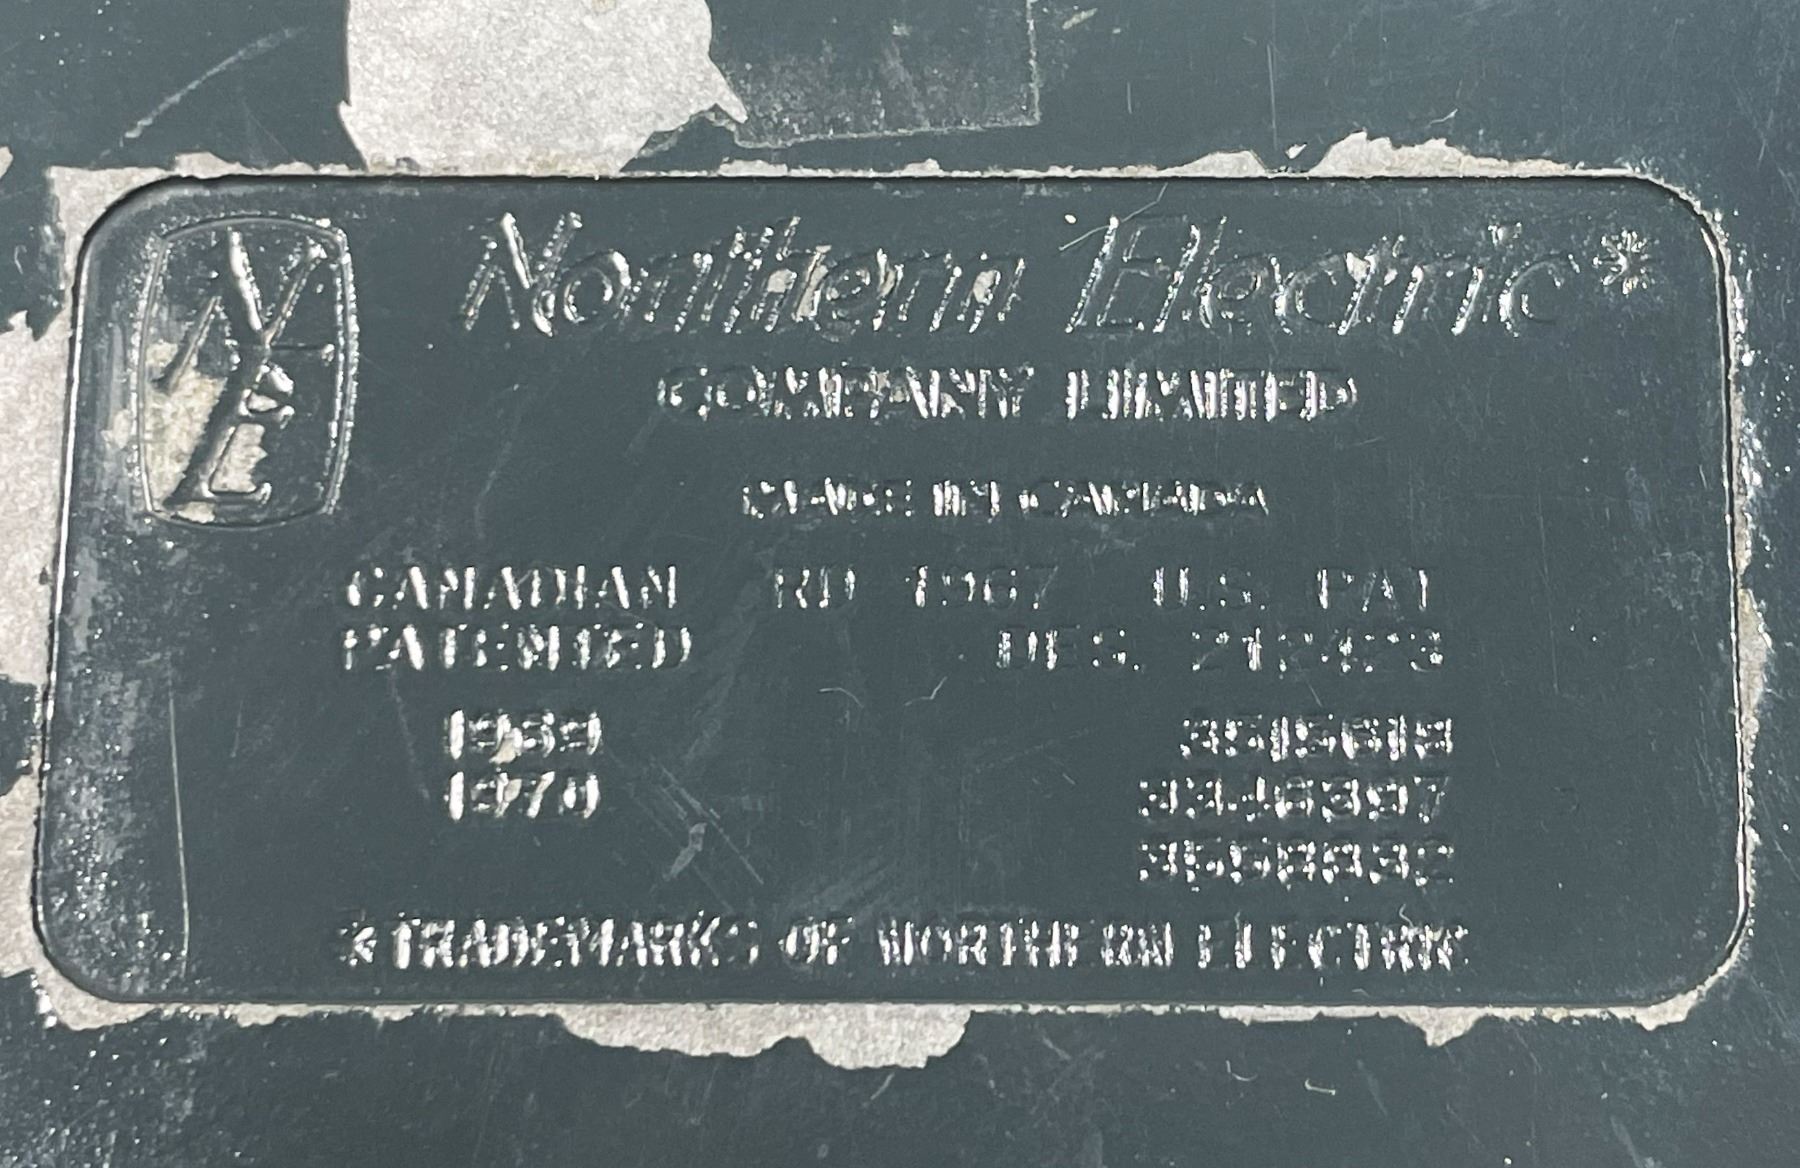 NE
Northern Electric*
COMPANY LIMITED
MADE IN CANADA
CANADIAN RD 1967 U.S. PAT
PATENTED DES. 212423
1969 3515619
1970 3546397
* TRADEMARKS OF NORTHERN ELECTRIC